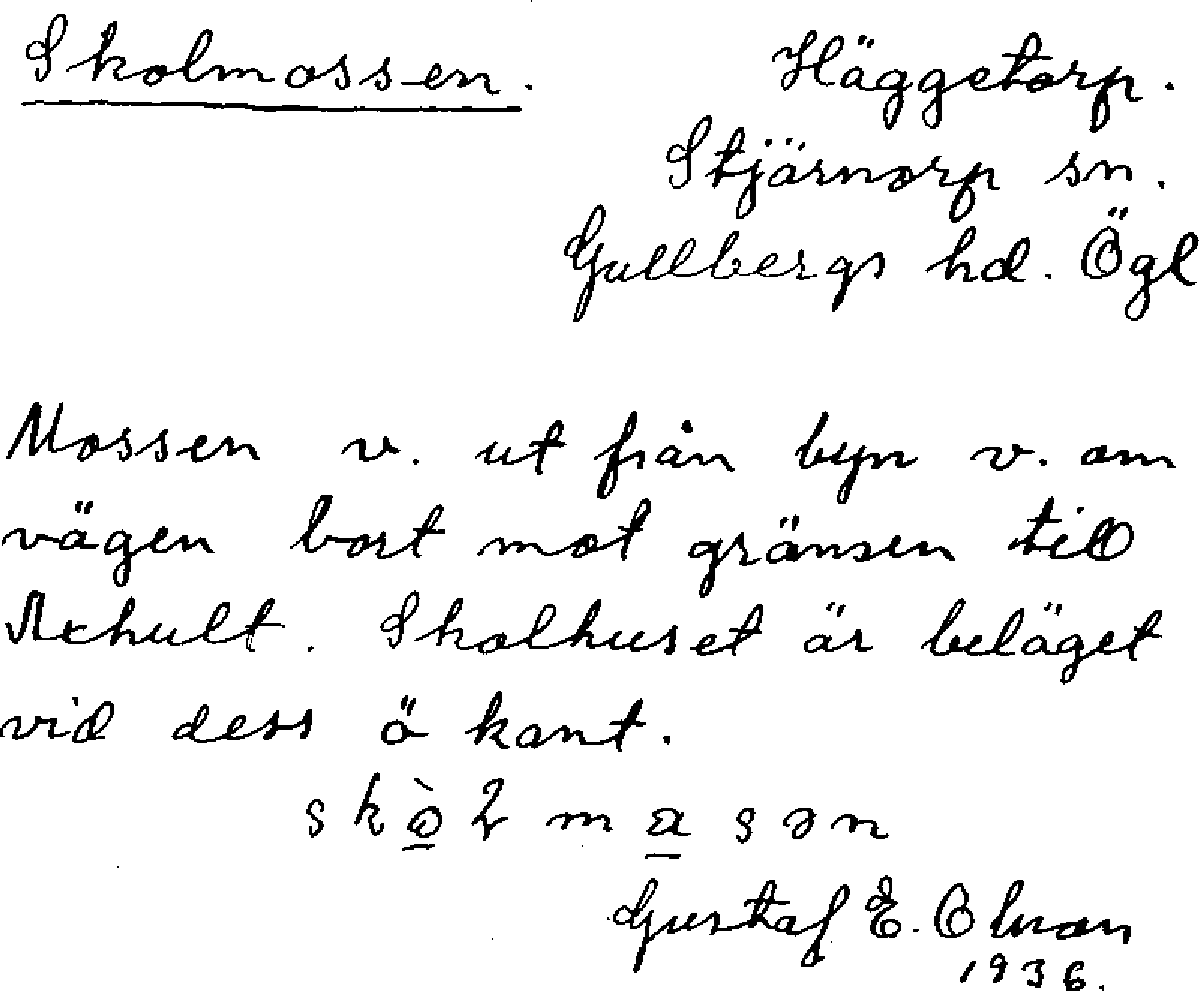 Skolmossen.
Häggetorp.
Stjärnorp sn.
Gullbergs hd. Ögl
Mossen v. ut från byn v. om
vägen bort mot gränsen till
Skolhuset är beläget
vid dess ö kant.
Gustaf E. Olsson
1936.